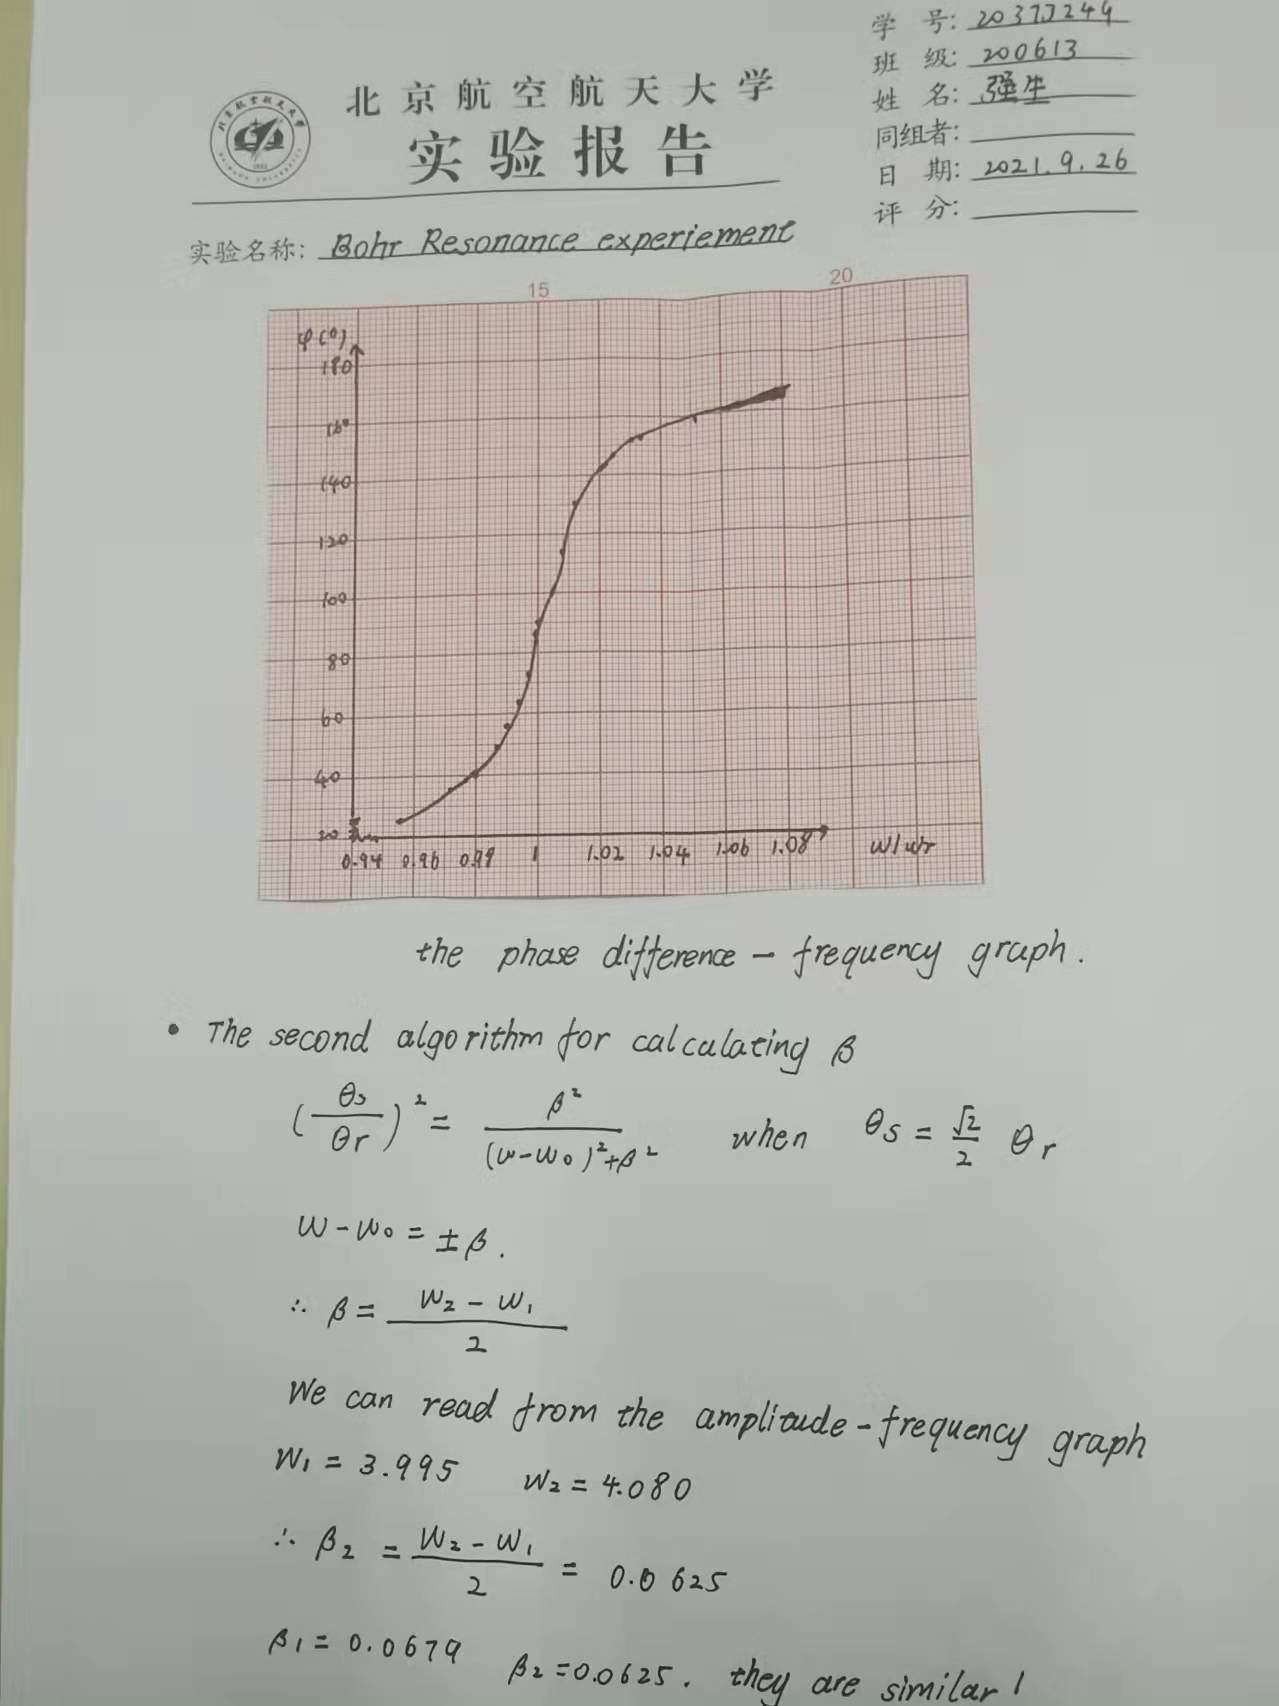 学 号: 20373249
班 级: 200613
姓 名: 强生
同组者:
日 期: 2021.9.26
评 分:
北京航空航天大学
实验报告
实验名称: Bohr Resonance experiement
15 20
φ(°)
180
160
140
120
100
80
60
40
20
0.94 0.96 0.98 1 1.02 1.04 1.06 1.08 w/wr
the phase difference - frequency graph.
• The second algorithm for calculating β
(θs/θr)² = β²/((w-w₀)²+β²) when θs = √2/2 θr
w - w₀ = ±β.
∴ β = (w₂ - w₁)/2
We can read from the amplitude - frequency graph
w₁ = 3.995 w₂ = 4.080
∴ β₂ = (w₂ - w₁)/2 = 0.0625
β₁ = 0.0679 β₂ = 0.0625. they are similar!